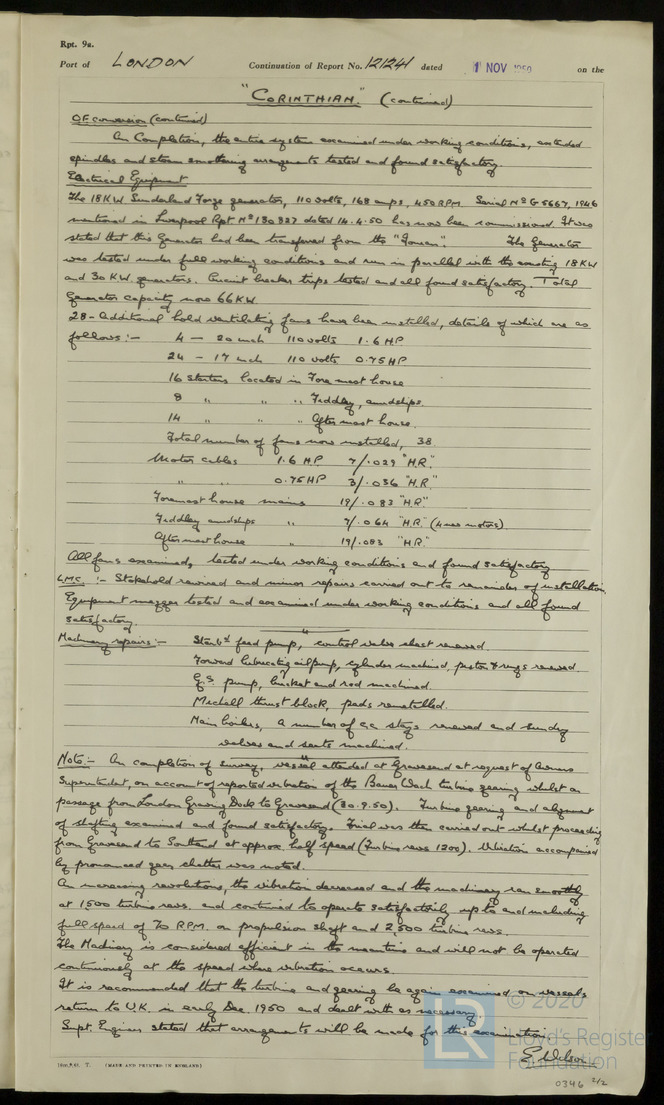 Rpt. 9a.
Port of LONDON Continuation of Report No. 121241 dated 1 NOV 1950 on the
"CORINTHIAN." (continued)
O.F. conversion (continued)
On Completion, the entire system examined under working conditions, extended
spindles and steam smothering arrangements tested and found satisfactory.
Electrical Equipment
The 18KW Sunderland Forge generator, 110 volts, 168 amps, 450 RPM Serial No G 5667, 1946
mentioned in Liverpool Rpt No 130927 dated 14.4.50 has now been commissioned. It was
stated that this Generator had been transferred from the The Generator
was tested under full working conditions and run in parallel with the existing 18KW
and 30KW generators. Circuit breaker trips tested and all found satisfactory. Total
Generator capacity now 66KW.
28 - Additional hold ventilating fans have been installed, details of which are as
follows :- 4 - 20 inch 110 volts 1.6 HP
24 - 17 inch 110 volts 0.75 HP
16 starters located in Fore mast house
8 " " " Fiddley, amidships.
14 " " " After mast house.
Total number of fans now installed, 38.
Motor cables 1.6 HP 7/.029 "H.R."
" " 0.75HP 3/.036 "H.R."
Foremast house mains 19/.083 "H.R."
Fiddley amidships " 7/.064 "H.R." (4 motors)
After mast house " 19/.083 "H.R."
All fans examined, tested under working conditions and found satisfactory
L.M.C. :- Stokehold rewired and minor repairs carried out to remainder of installation,
Equipment megger tested and examined under working conditions and all found
satisfactory.
Machinery repairs :- Starbd feed pump, control valve chest renewed.
Forward lubricating oil pump, cylinder machined, piston & rings renewed.
G.S. pump, bucket and rod machined.
Michell thrust block, pads remetalled.
Main boilers, a number of c.c. stays renewed and sundry
valves and seats machined.
Note :- On completion of survey, vessel attended at Gravesend at request of Owners
Superintendent, on account of reported vibration of the Bauer Wach turbine gearing whilst on
passage from London Graving Dock to Gravesend (30.9.50). Turbine gearing and alignment
of shafting examined and found satisfactory. Trial was then carried out whilst proceeding
from Gravesend to Southend at approx. half speed (Turbine revs 1200). Vibration accompanied
by pronounced gear chatter was noted.
On increasing revolutions, the vibration decreased and the machinery ran smoothly
at 1500 turbine revs. and continued to operate satisfactorily up to and including
full speed of 70 R.P.M. on propulsion shaft and 2,500 turbine revs.
The Machinery is considered efficient in the meantime and will not be operated
continuously at the speed where vibration occurs.
It is recommended that the turbine and gearing be again examined on vessels
return to U.K. in early Dec. 1950 and dealt with as necessary.
Supt. Engineer stated that arrangements will be made for this examination.
E. Wilson
(MADE AND PRINTED IN ENGLAND)
0346 2/2
© 2020
LR
Lloyd's Register
Foundation